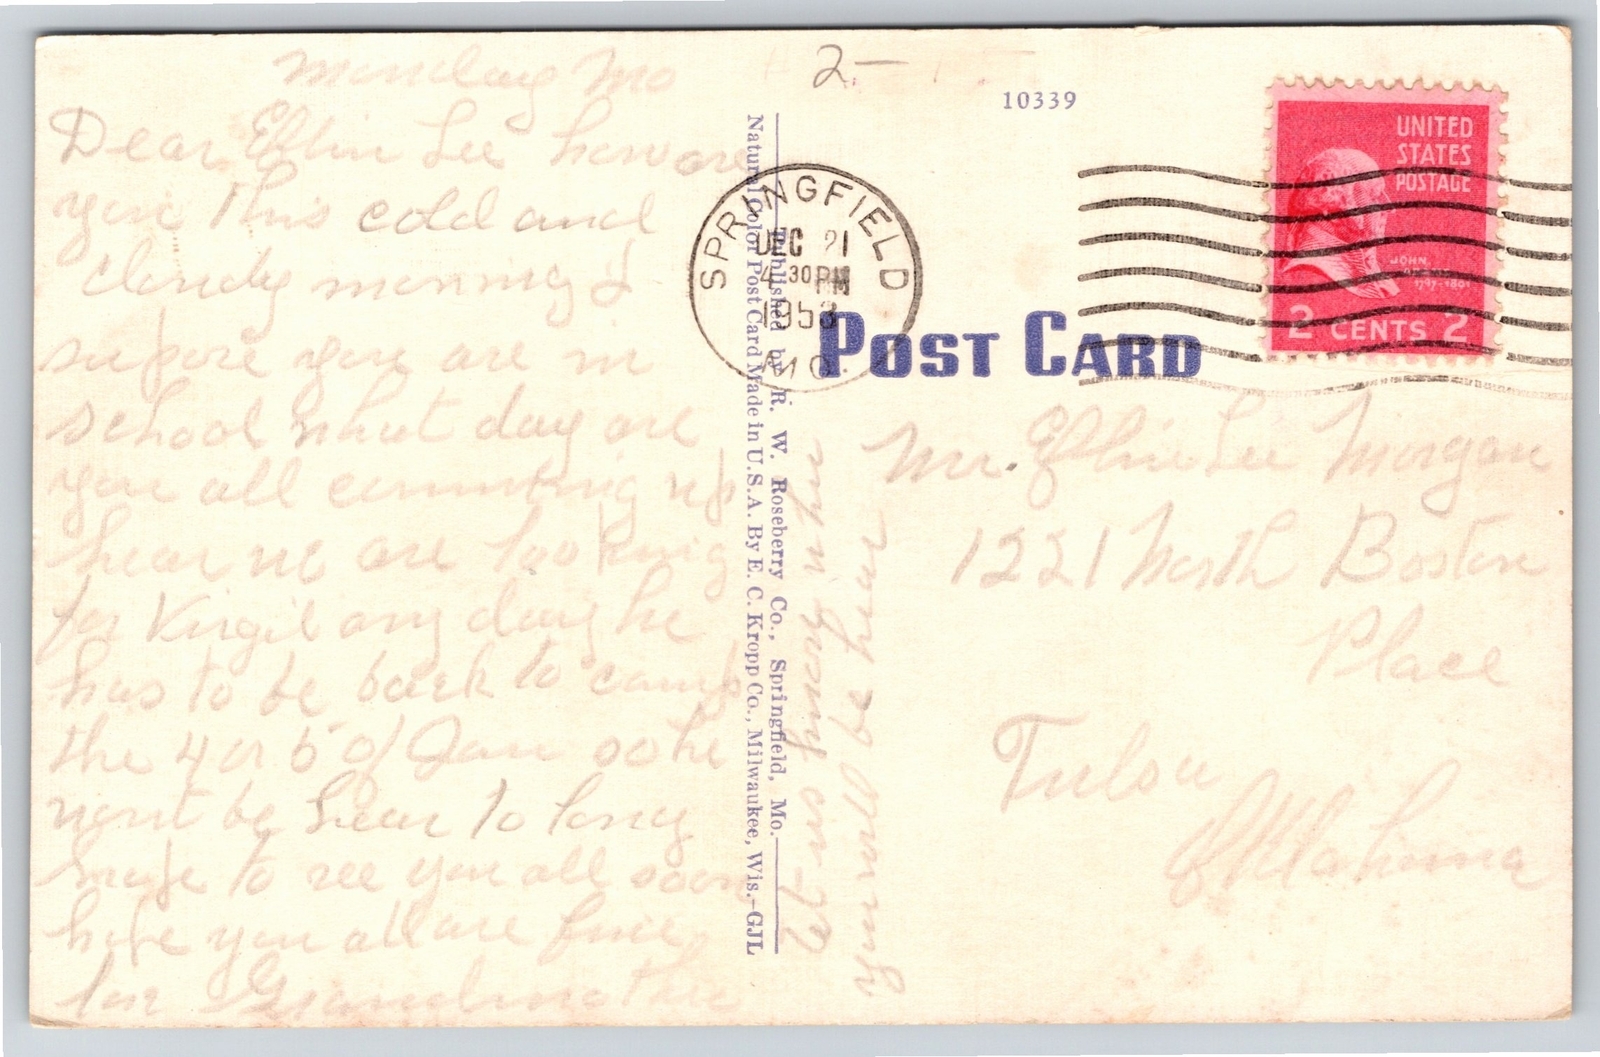 Monday Mo
Dear Effin Lee how are
you this cold and
cloudy morning I
supose you are in
school what day are
you all comming up
hear we are looking
for Virgil any day he
has to be back to camp
the 4 or 5 of Jan so he
wont be hear to long
hope to see you all soon
hope you all are fine
Grandmother
2–
10339
SPRINGFIELD
DEC 21
4 30 PM
1953
MO.
UNITED
STATES
POSTAGE
JOHN
1797-1801
2 CENTS 2
POST CARD
Published by R. W. Roseberry Co., Springfield, Mo.
Natural Color Post Card Made in U.S.A. By E. C. Kropp Co., Milwaukee, Wis.–GJL
will be hear
Mr. Effin Lee Morgan
1221 North Boston
Place
Tulsa
Oklahoma